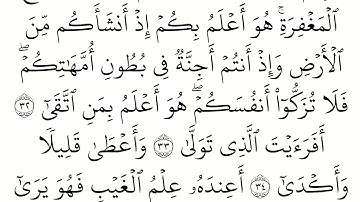 ٱلۡمَغۡفِرَةِۚ هُوَ أَعۡلَمُ بِكُمۡ إِذۡ أَنشَأَكُم مِّنَ
ٱلۡأَرۡضِ وَإِذۡ أَنتُمۡ أَجِنَّةٞ فِي بُطُونِ أُمَّهَٰتِكُمۡۖ
فَلَا تُزَكُّوٓاْ أَنفُسَكُمۡۖ هُوَ أَعۡلَمُ بِمَنِ ٱتَّقَىٰٓ ٣٢
أَفَرَءَيۡتَ ٱلَّذِي تَوَلَّىٰ ٣٣ وَأَعۡطَىٰ قَلِيلٗا
وَأَكۡدَىٰٓ ٣٤ أَعِندَهُۥ عِلۡمُ ٱلۡغَيۡبِ فَهُوَ يَرَىٰٓ